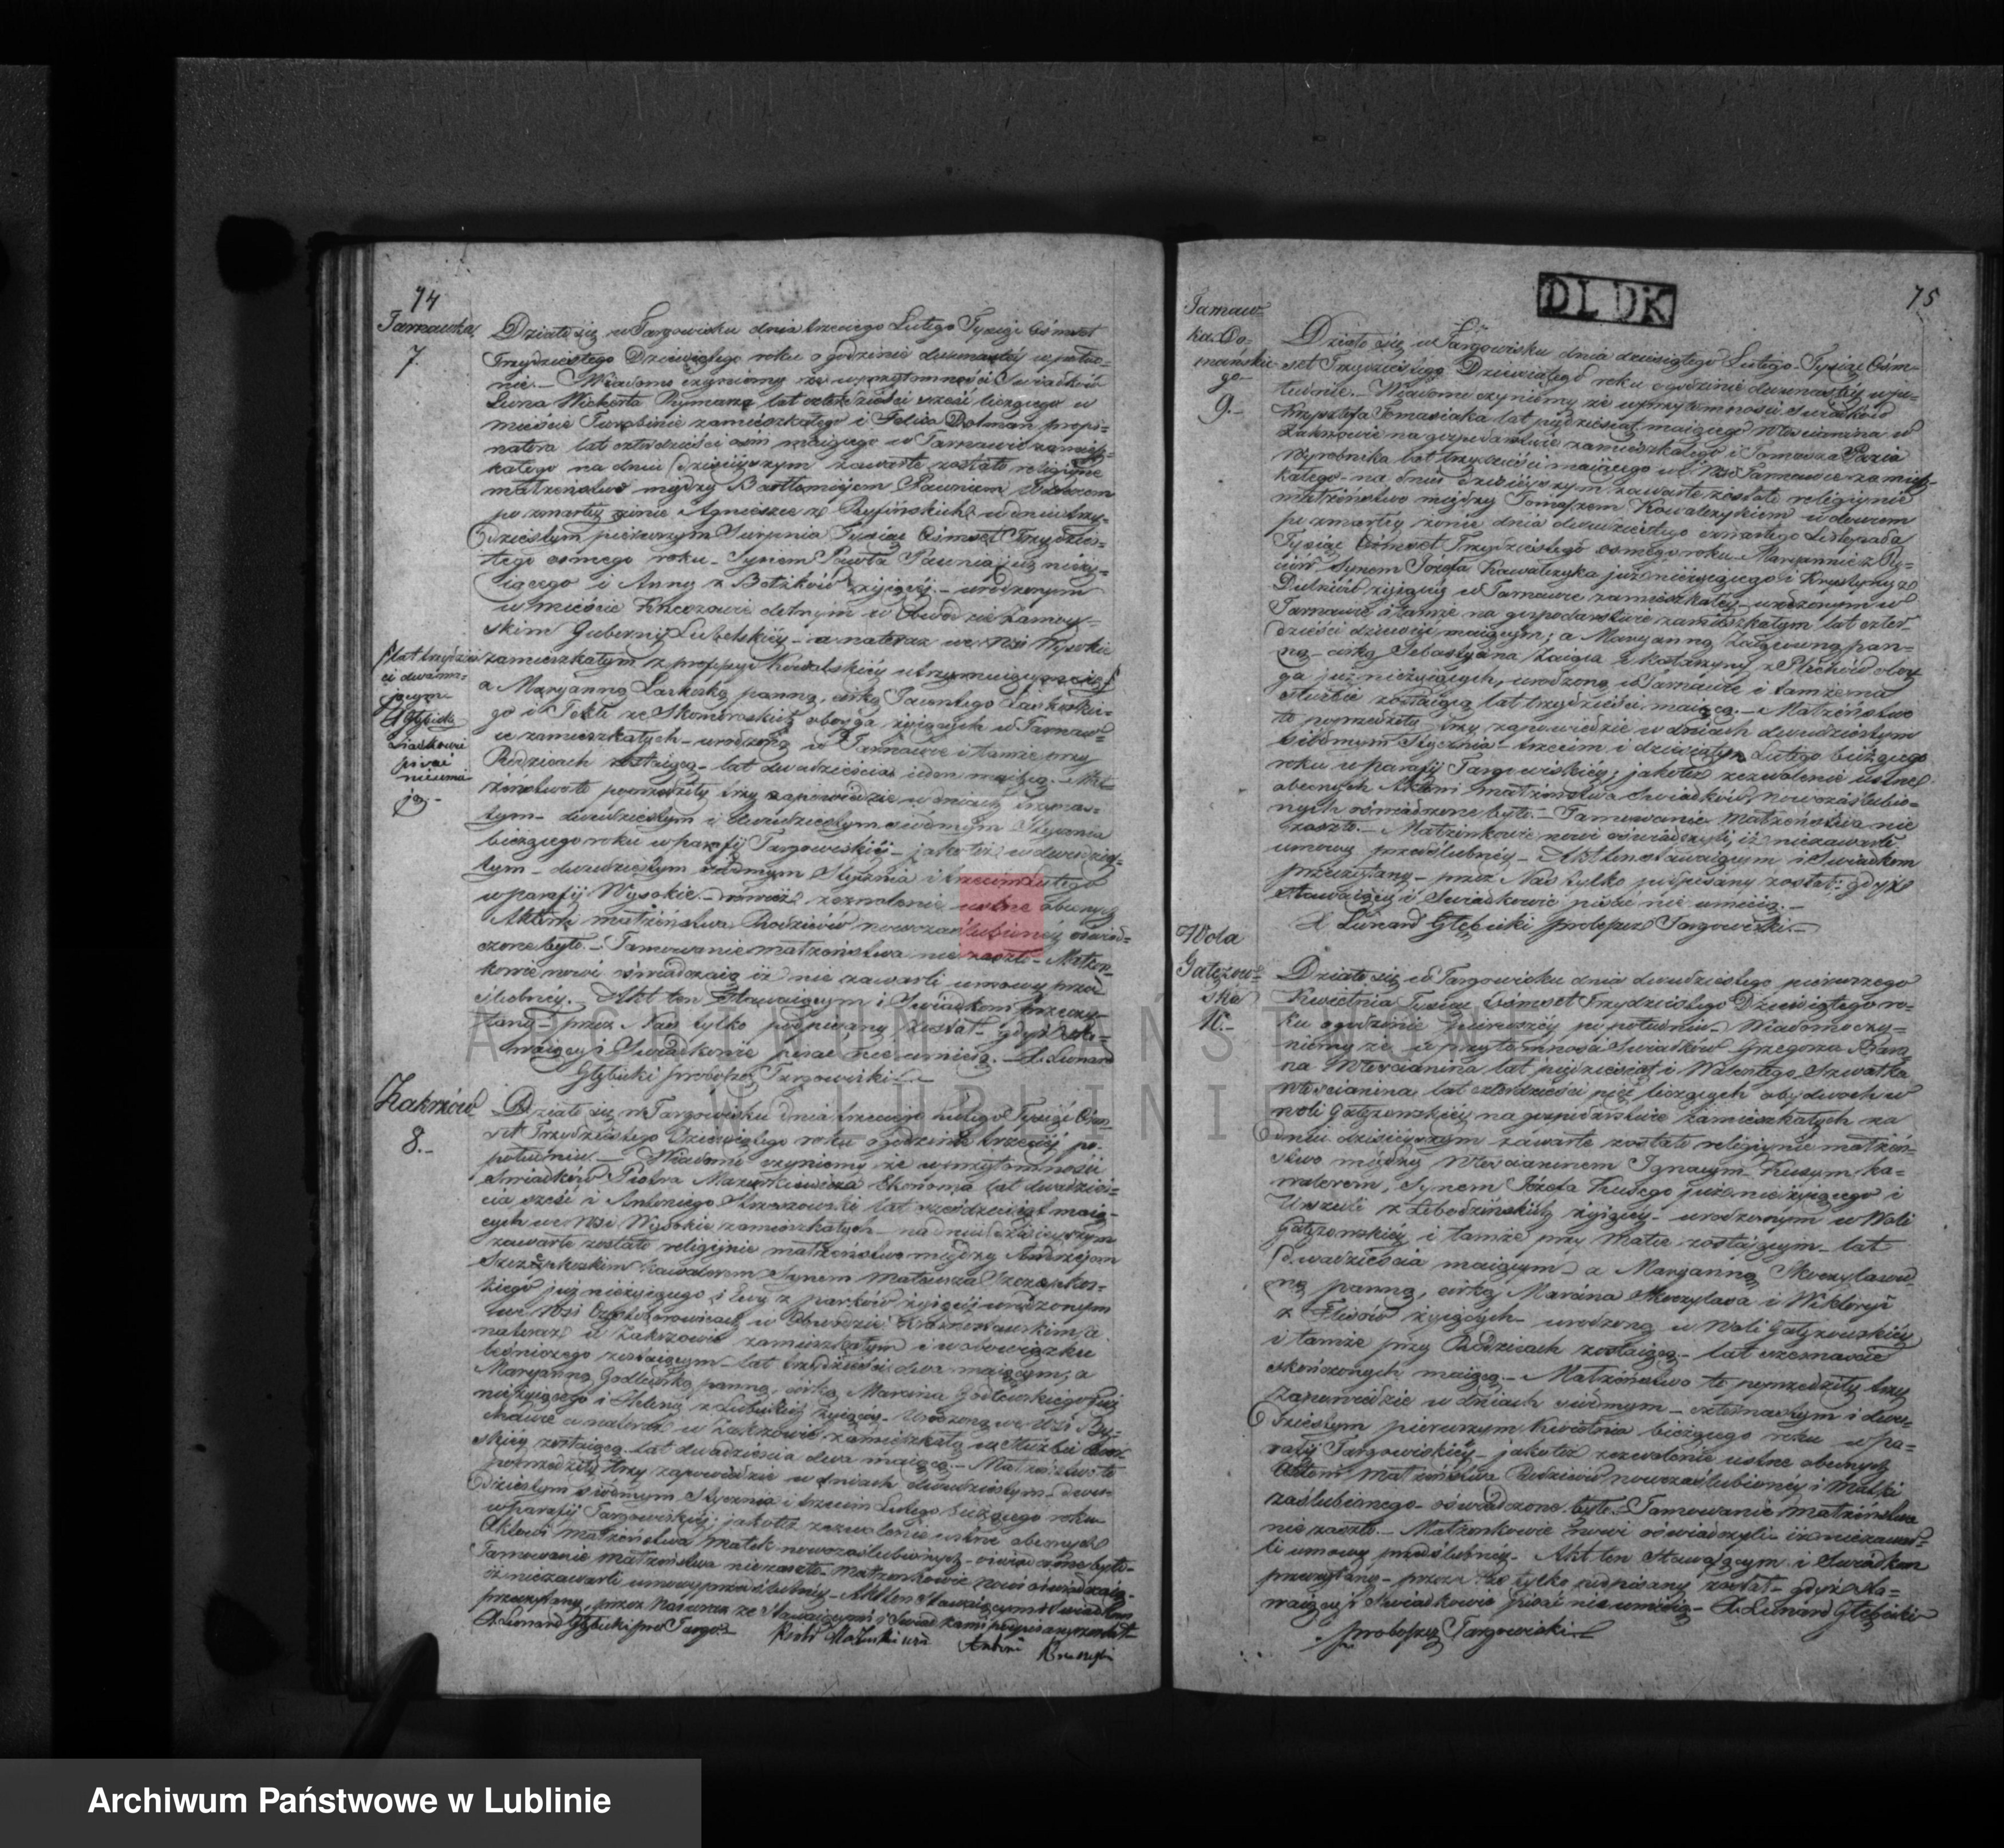 74
Tarnawka
7.
Działo się w Targowisku dnia trzeciego Lutego Tysiąc Ośmset
Trzydziestego Dziewiątego roku o godzinie dwunastéj w połud-
nie. — Wiadomo czyniemy że w przytomności Świadków
lat czterdzieści sześć liczącego w
mieście Turobinie zamieszkałego i Felixa propi-
natora lat czterdzieści ośm maiącego w Tarnawie zamiesz-
kałego na dniu dzisieyszym zawarte zostało religijne
małżeństwo między Bartłomiejem Pauniem Wdowcem
po zmarłey żonie Agnieszce z w dniu trzy-
dziestym pierwszym Sierpnia Tysiąc Ośmset Trzydzies-
tego osmego roku. Synem Pawła Paunia już nieży-
iącego i Anny z żyiącéj. — urodzonym
w mieście w Obwodzie Zamoy-
skim Gubernij Lubelskiéy — a na teraz we Wsi Wysokie
zamieszkałym z professyi Kowalskiéy utrzymuiącym się
a Maryanną Laskoską panną, córką Laskoskie-
go i Tekli ze Skomoroskich oboyga żyiących w Tarnaw-
ce zamieszkałych — urodzoną w Tarnawce i tamże przy
Rodzicach zostaiącą — lat dwadzieścia ieden maiącą. — Mał-
żeństwo to poprzedziły trzy zapowiedzie w dniach trzynas-
tym — dwudziestym i dwudziestym siódmym Stycznia
bieżącego roku w parafij Targowiskiéj — jako też w dwudzies-
tym — dwudziestym siódmym Stycznia i trzecim Lutego
w parafij Wysokie — zezwolenie ustne obecnych
Aktowi małżeństwa Rodziców nowozaślubionéy oświad-
czone było. — Tamowanie małżeństwa nie zaszło — Małżon-
kowie nowi oświadczaią iż nie zawarli umowy przed
ślubnéy. — Akt ten Stawaiącym i Świadkom przeczy-
tany — przez Nas tylko podpisany został — gdyż Sta-
waiący i Świadkowie pisać nie umieią. — X. Leonard
Głębicki proboszcz Targowiski
lat trzydzieś
ci dwa ma-
jącym
Głębicki
Świadkowie
pisać
nieumie
ją. -
Zakrzów
8. -
Działo się w Targowisku dnia trzeciego Lutego Tysiąc Ośm-
set Trzydziestego Dziewiątego roku o godzinie trzeciéy po
południu. — Wiadomo czyniemy że w przytomności
Świadków Piotra Mazurkiewicza Ekonoma lat dwadzieś-
cia sześć i Antoniego lat sześdziesiąt maią-
cych we Wsi Wysokie zamieszkałych — na dniu dzisieyszym
zawarte zostało religijnie małżeństwo między Andrzejem
kawalerem Synem Mateusza
kiego już nieżyiącego i Ewy z żyiącéj urodzonym
we Wsi w Obwodzie Krasnostawskim, a
na teraz w Zakrzowie zamieszkałym i w obowiązku
leśniczego zostaiącym — lat trzydzieści dwa maiącym, a
Maryanną Godlewską panną, córką Marcina Godlewskiego już
nieżyiącego i Heleny z żyiącéy — Urodzoną we Wsi By-
chawce a na teraz w Zakrzowie zamieszkałą na służbie
skiéy zostaiącą — lat dwadzieścia dwa maiącą. — Małżeństwo to
poprzedziły trzy zapowiedzie w dniach dwudziestym — dwu-
dziestym siódmym Stycznia i trzecim Lutego bieżącego roku
w parafij Targowiskiéj; jako też zezwolenie ustne obecnych
Aktowi małżeństwa Matek nowozaślubionych — oświadczone było.
Tamowanie małżeństwa nie zaszło — Małżonkowie nowi oświadczaią
iż nie zawarli umowy przedślubnéy — Akt ten Stawaiącym i Świadkom
przeczytany, przez Nas wraz ze Stawaiącymi i Świadkami podpisany został
X. Leonard Głębicki pro: Targo:
Antoni
75
DL DK
Tarnaw-
ka Do-
mańskie-
go
9. -
Działo się w Targowisku dnia dziesiątego Lutego Tysiąc Ośm-
set Trzydziestego Dziewiątego roku o godzinie dwunastéy w po-
łudnie. — Wiadomo czyniemy że w przytomności Świadków
Krzysztofa Tomasiaka lat pięćdziesiąt maiącego Włościanina w
Zakrzowie na gospodarstwie zamieszkałego i Tomasza
Wyrobnika lat trzydzieści maiącego we Wsi Tarnawce zamiesz-
kałego — na dniu dzisieyszym zawarte zostało religijnie
małżeństwo między Tomaszem Kowalczykiem wdowcem
po zmarłéy żonie dnia dwudziestego czwartego Listopada
Tysiąc Ośmset Trzydziestego osmego roku — Maryannie z
Synem Józefa Kowalczyka już nieżyiącego i Krystyny z
żyiącéy w Tarnawce zamieszkałéy — urodzonym w
Tarnawce i tamże na gospodarstwie zamieszkałym lat czter-
dzieści dziewięć maiącym; a Maryanną pan-
ną — córką Sebastyana i Katarzyny z oboy-
ga już nieżyiących, urodzoną w Tarnawce i tamże na
służbie zostaiącą lat trzydzieści maiącą. — Małżeństwo
to poprzedziły trzy zapowiedzie w dniach dwudziestym
siódmym Stycznia — trzecim i dziesiątym Lutego bieżącego
roku w parafij Targowiskiéj; jako też zezwolenie ustne
obecnych Aktowi małżeństwa Świadków nowozaślubio-
nych oświadczone było. — Tamowanie małżeństwa nie
zaszło. — Małżonkowie nowi oświadczyli iż nie zawarli
umowy przedślubnéy. — Akt ten stawaiącym i Świadkom
przeczytany — przez Nas tylko podpisany został; gdyż
Stawaiący i Świadkowie pisać nie umieią. —
X Leonard Głębicki proboszcz Targowiski. —
Wola
Gałęzow-
ska
10. -
Działo się w Targowisku dnia dwudziestego pierwszego
Kwietnia Tysiąc Ośmset Trzydziestego Dziewiątego ro-
ku o godzinie pierwszéy po południu. — Wiadomo czy-
niemy że w przytomności Świadków Grzegorza
na Włościanina lat pięćdziesiąt i Walentego Szwałka
Włościanina lat czterdzieści pięć liczących obydwóch w
Woli Gałęzowskiéy na gospodarstwie zamieszkałych na
dniu dzisieyszym zawarte zostało religijnie małżeń-
stwo między Włościaninem Ignacym ka-
walerem, Synem Józefa już nieżyiącego i
Urszuli z żyiącéy — urodzonym w Woli
Gałęzowskiéy i tamże przy Matce zostaiącym — lat
dwadzieścia maiącym — a Maryanną
ną panną, córką Marcina i Wiktoryi
z żyiących — urodzoną w Woli Gałęzowskiéy
i tamże przy Rodzicach zostaiącą — lat szesnaście
skończonych maiącą. — Małżeństwo to poprzedziły trzy
zapowiedzie w dniach siódmym — czternastym i dwu-
dziestym pierwszym Kwietnia bieżącego roku w pa-
rafij Targowiskiéy — jako też zezwolenie ustne obecnych
Aktowi małżeństwa Rodziców nowozaślubionéy i Matki
zaślubionego — oświadczone było. — Tamowanie małżeństwa
nie zaszło. — Małżonkowie nowi oświadczyli iż nie zawar-
li umowy przedślubnéy. — Akt ten Stawaiącym i Świadkom
przeczytany — przez Nas tylko podpisany został — gdyż Sta-
waiący i Świadkowie pisać nie umieią — X. Leonard Głębicki
proboszcz Targowiski
ARCHIWUM PAŃSTWOWE
W LUBLINIE
Archiwum Państwowe w Lublinie